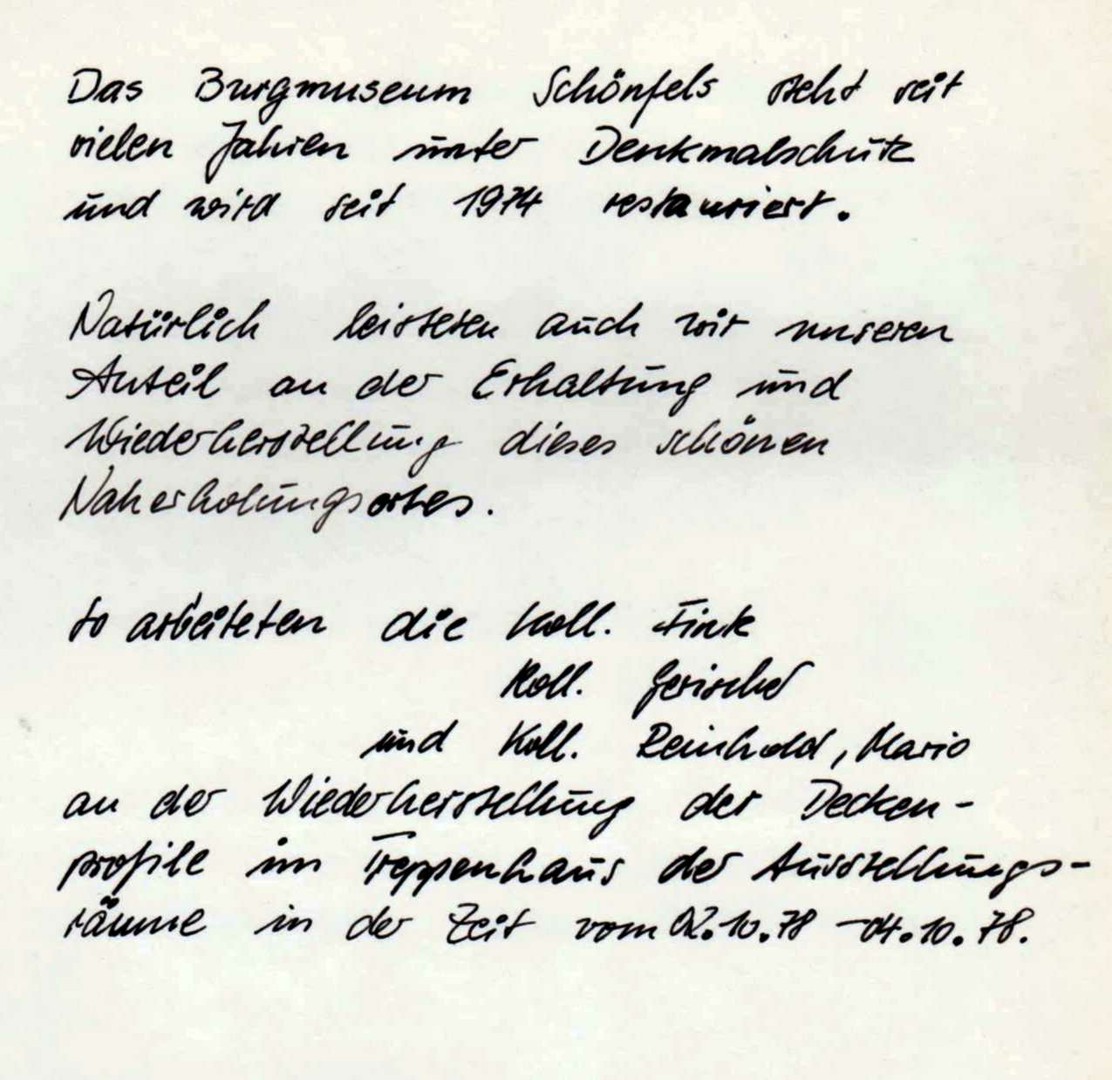 Das Burgmuseum Schönfels steht seit
vielen Jahren unter Denkmalschutz
und wird seit 1974 restauriert.
Natürlich leisteten auch wir unseren
Anteil an der Erhaltung und
Wiederherstellung dieses schönen
Naherholungsortes.
So arbeiteten die Koll. Fink
Koll. Gerischer
und Koll. Reinhold, Mario
an der Wiederherstellung der Decken-
profile im Treppenhaus der Ausstellungs-
räume in der Zeit vom 02.10.78 - 04.10.78.